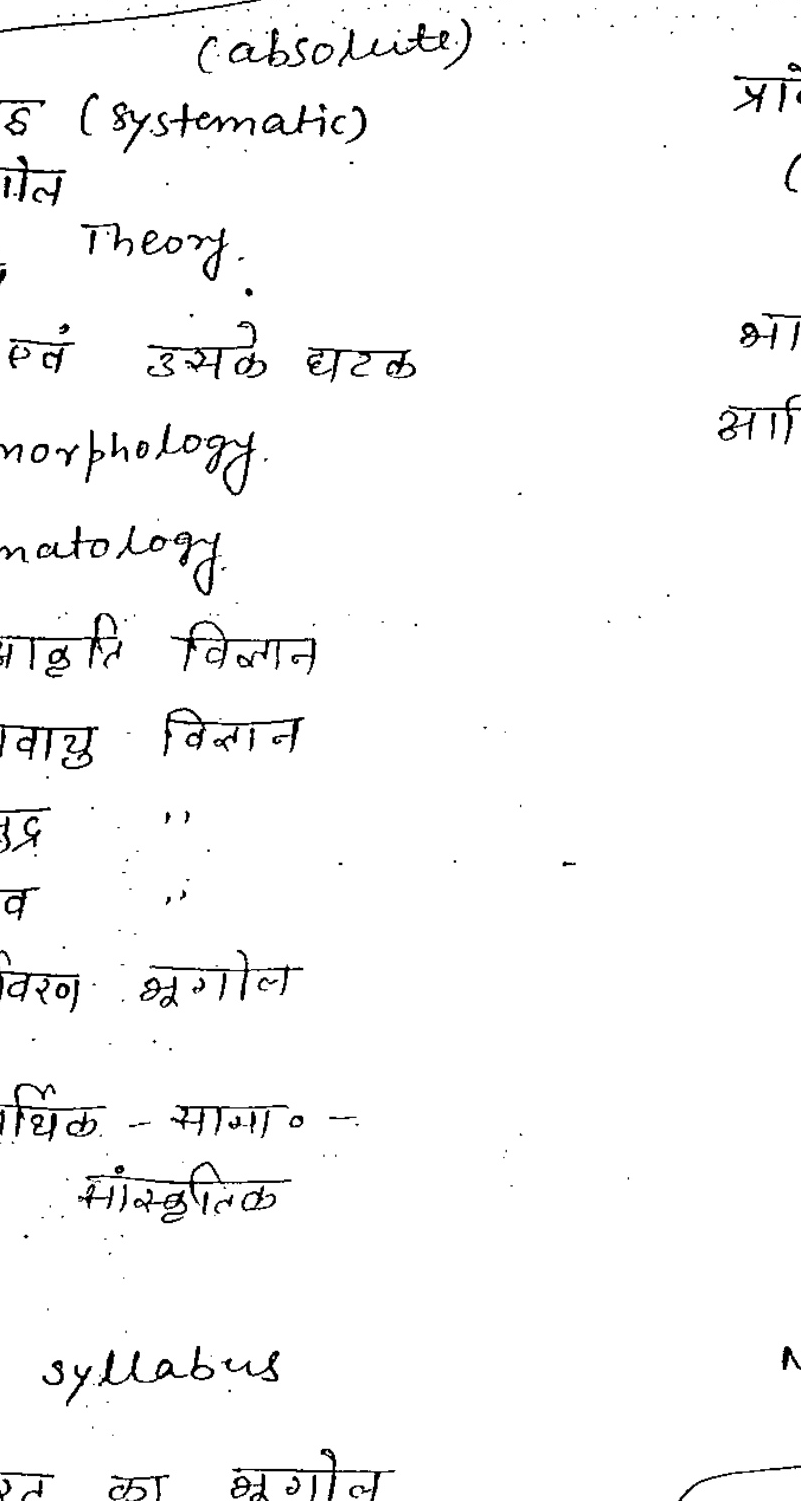 (absolute)
ड (systematic)
गोल
Theory.
एवं उसके घटक
morphology.
matology.
आकृति विज्ञान
वायु विज्ञान
मुद्र ,,
व ,,
विरण भूगोल
र्थिक - सामा० -
सांस्कृतिक
syllabus
रत का भूगोल
प्रा
(
भा
आ
N